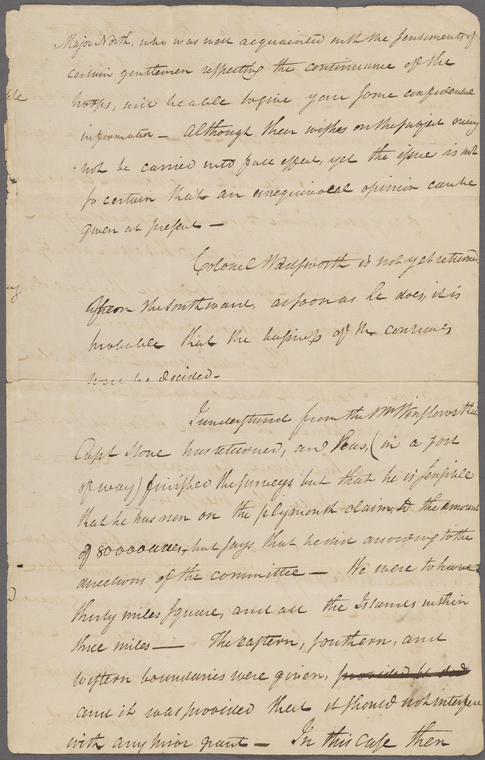 Major North, who was well acquainted with the sentiments of
certain gentlemen respecting the continuance of the
troops, will be able to give you some confidential
information — Although their wishes on the subject may
not be carried into full effect, yet the issue is not
so certain that an unequivocal opinion can be
given at present —
Colonel Wadsworth is not yet returned
from the Southward, as soon as he does, it is
probable that the business of the contracts
will be decided —
I understand from the Mr Winslows that
Capt Stone has returned, and has, (in a sort
of way) finished the surveys but that he is sensible
that he has run on the plymouth claim, to the amount
of 80000 acres, but says that he did according to the
directions of the committee — We were to have
thirty miles square, and all the Islands within
three miles — The eastern, southern, and
western boundaries were given, provided it did
and it was provided that it should not interfere
with any prior grant — In this case then